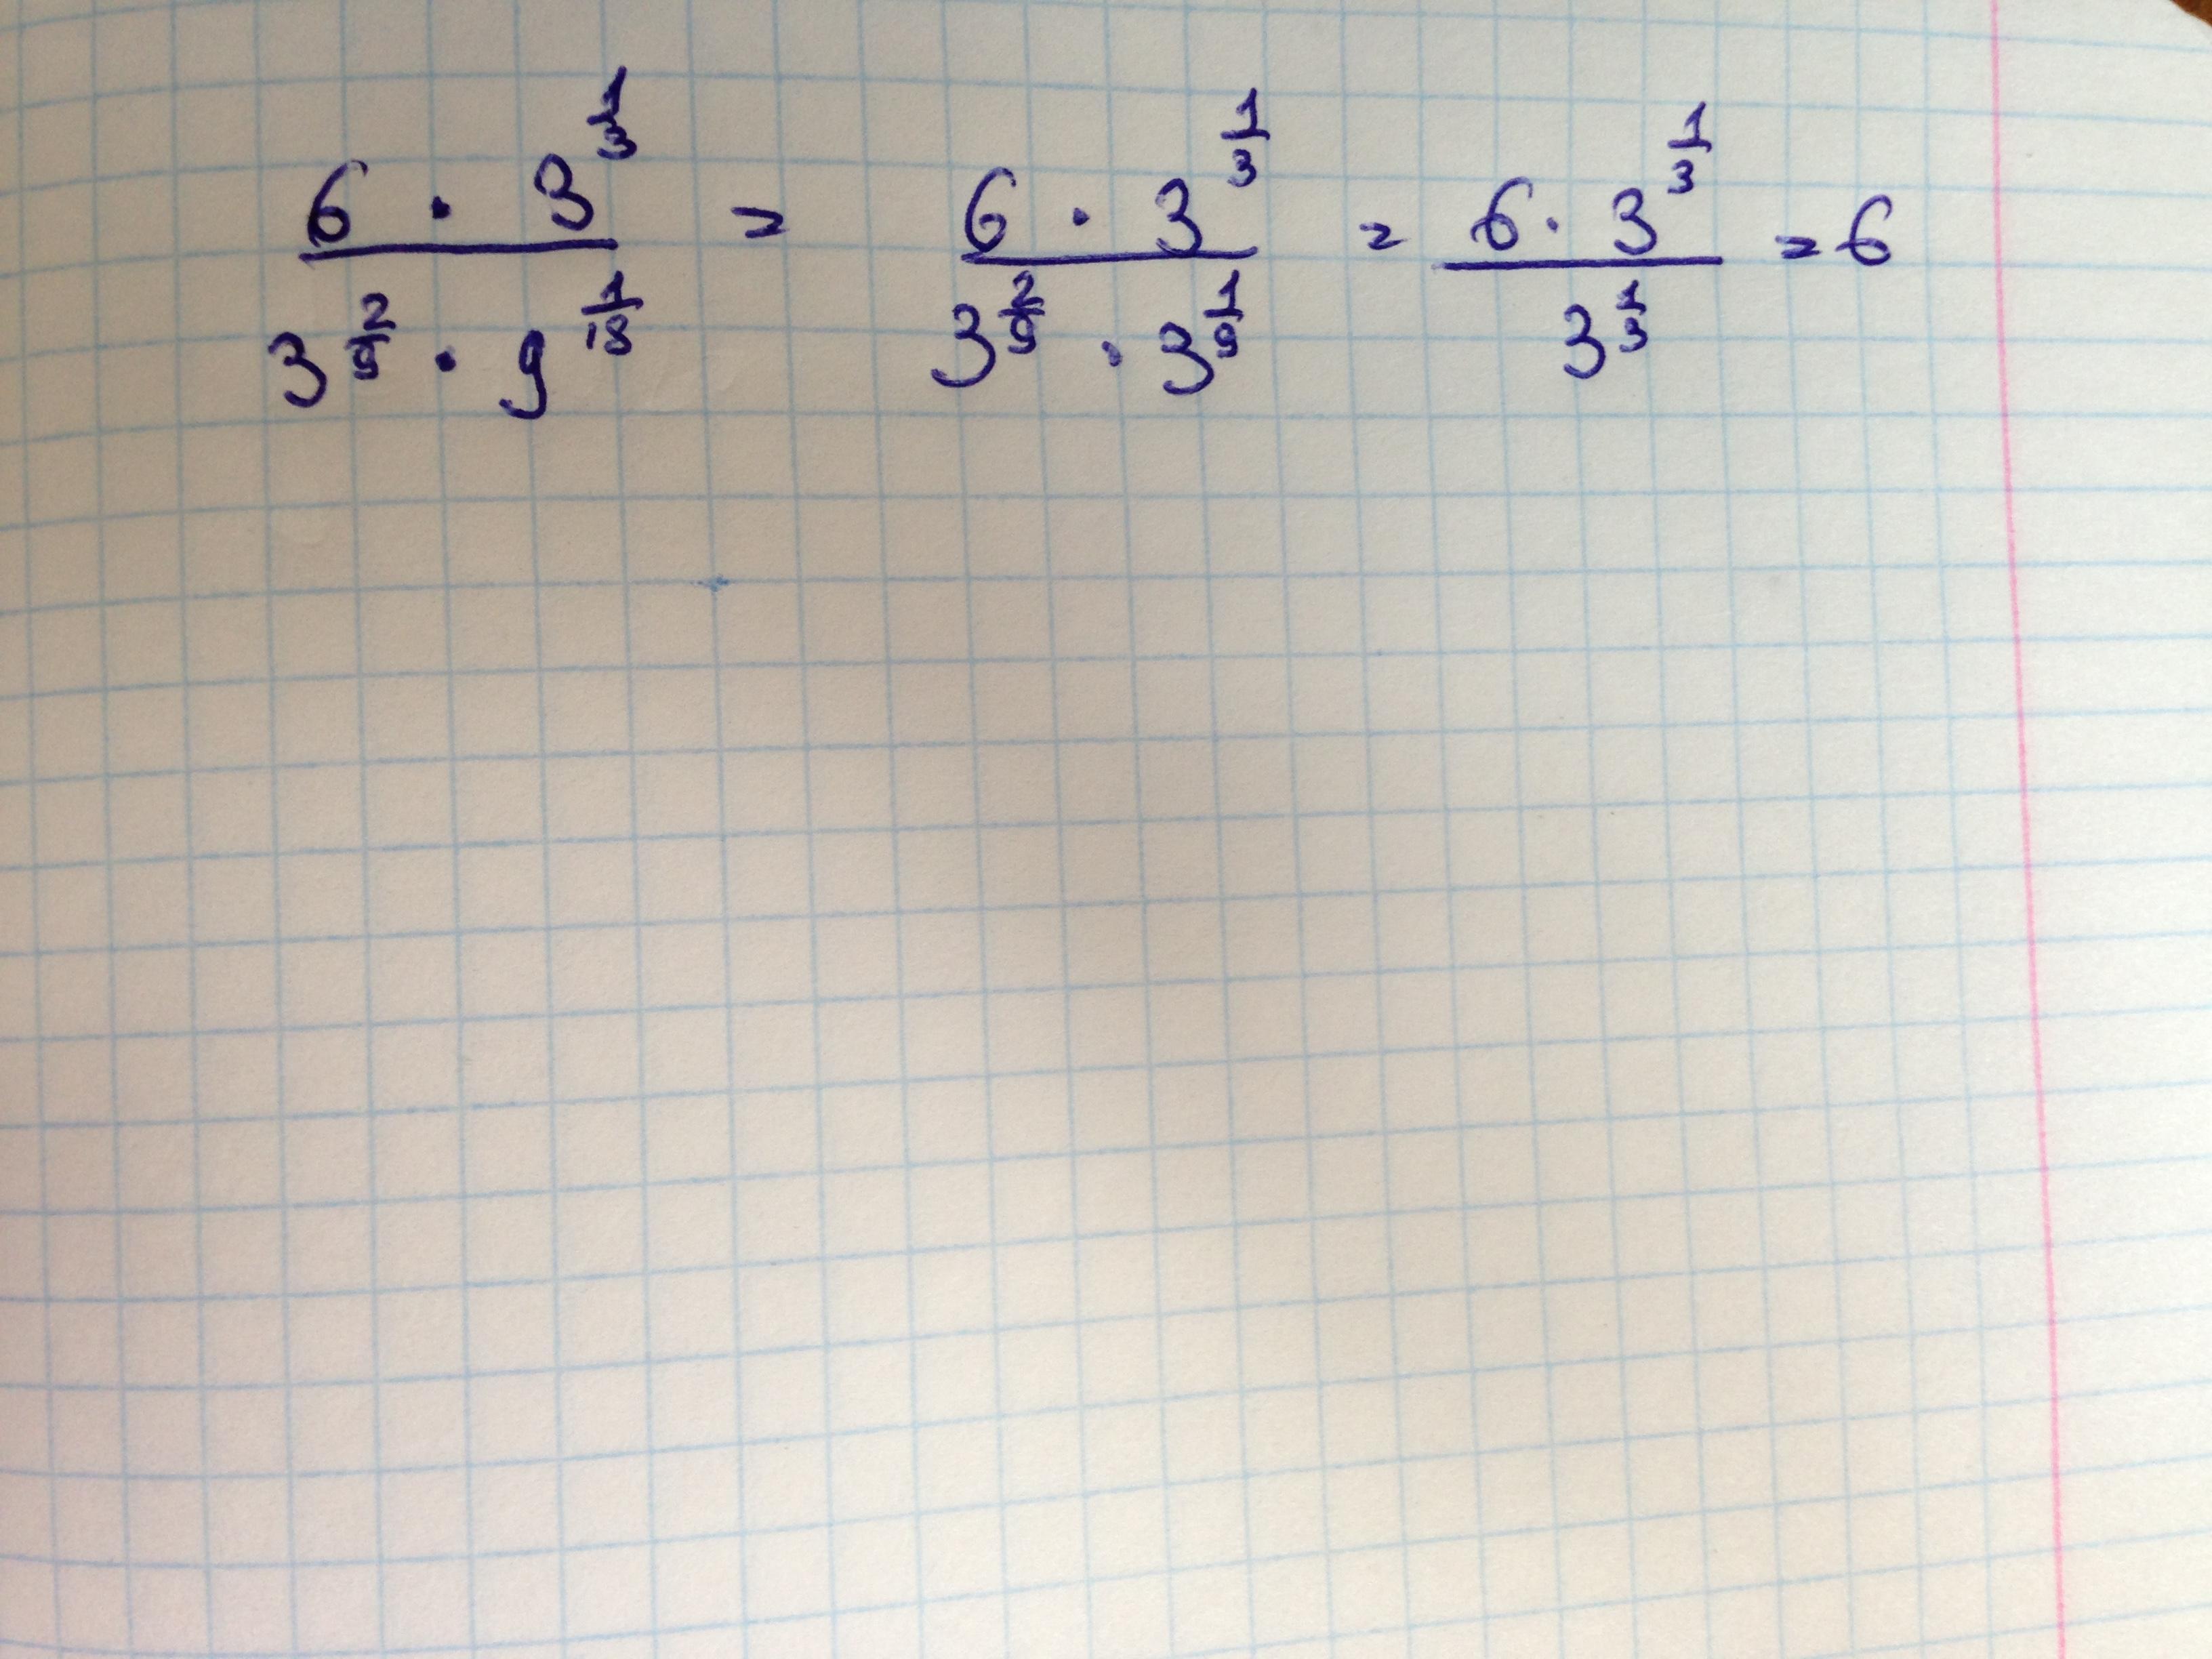 \frac{6 \cdot 3^{\frac{1}{3}}}{3^{\frac{2}{9}} \cdot 9^{\frac{1}{18}}} = \frac{6 \cdot 3^{\frac{1}{3}}}{3^{\frac{2}{9}} \cdot 3^{\frac{1}{9}}} = \frac{6 \cdot 3^{\frac{1}{3}}}{3^{\frac{1}{3}}} = 6